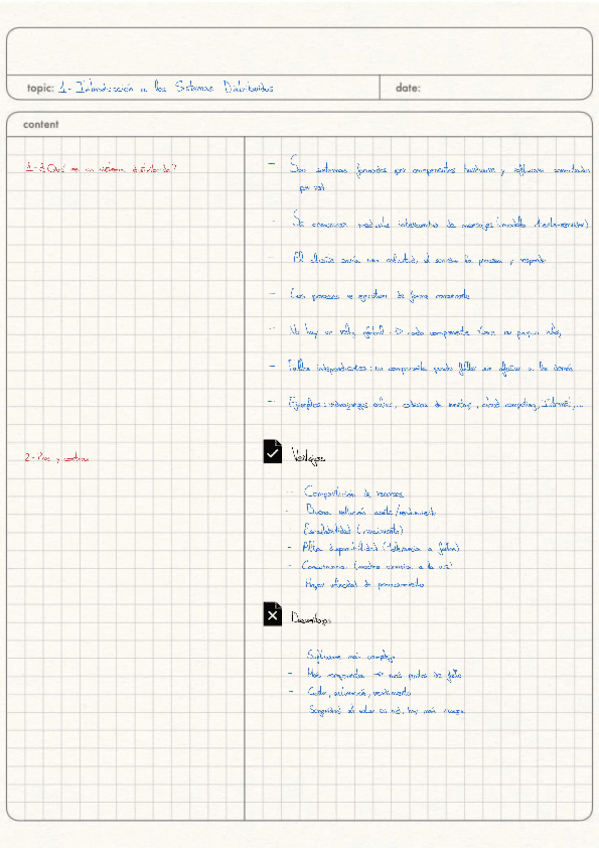 topic: 1- Introducción a los Sistemas Distribuidos
date:
content
1-¿Qué es un sistema distribuido?
- Son sistemas formados por componentes hardware y software conectados
por red
- Se comunican mediante intercambio de mensajes (modelo cliente-servidor)
- El cliente envía una solicitud, el servidor la procesa y responde
- Los procesos se ejecutan de forma concurrente
- No hay un reloj global -> cada componente tiene su propio reloj
- Fallos independientes: un componente puede fallar sin afectar a los demás
- Ejemplos: videojuegos online, cadenas de, cloud computing, Internet,...
2- Pros y contras
Ventajas
- Compartición de recursos
- Buena relación coste/rendimiento
Escalabilidad (crecimiento)
- Alta disponibilidad (tolerancia a fallos)
- Concurrencia (a la vez)
Mayor velocidad de procesamiento
Desventajas
Software más complejo
- Más componentes -> más puntos de fallo
- Coste, rendimiento
Seguridad: al estar en red, hay más